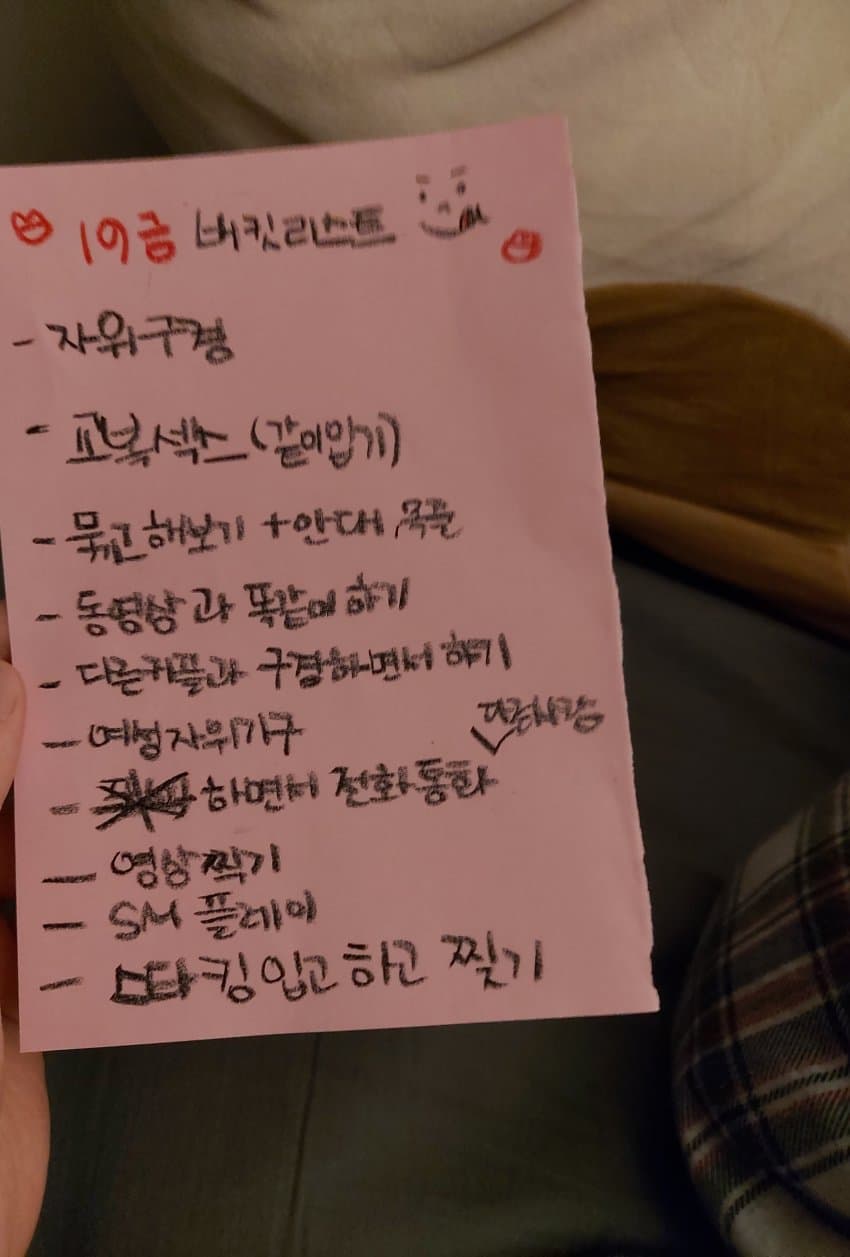 19금 버킷리스트
- 자위구경
- 교복섹스 (같이입기)
- 묶고해보기 + 안대,목줄
- 동영상과 똑같이 하기
- 다른커플과 구경하면서 하기
- 여성자위기구
- 하면서 다른사람 전화통화
- 영상찍기
- SM 플레이
- 스타킹입고하고 찢기